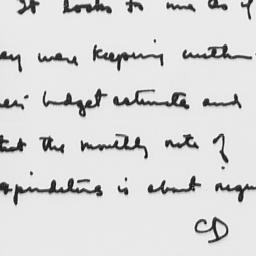 It looks to me as if
ey were keeping within
eir budget estimate and
that the monthly rate of
expenditure is about
CD